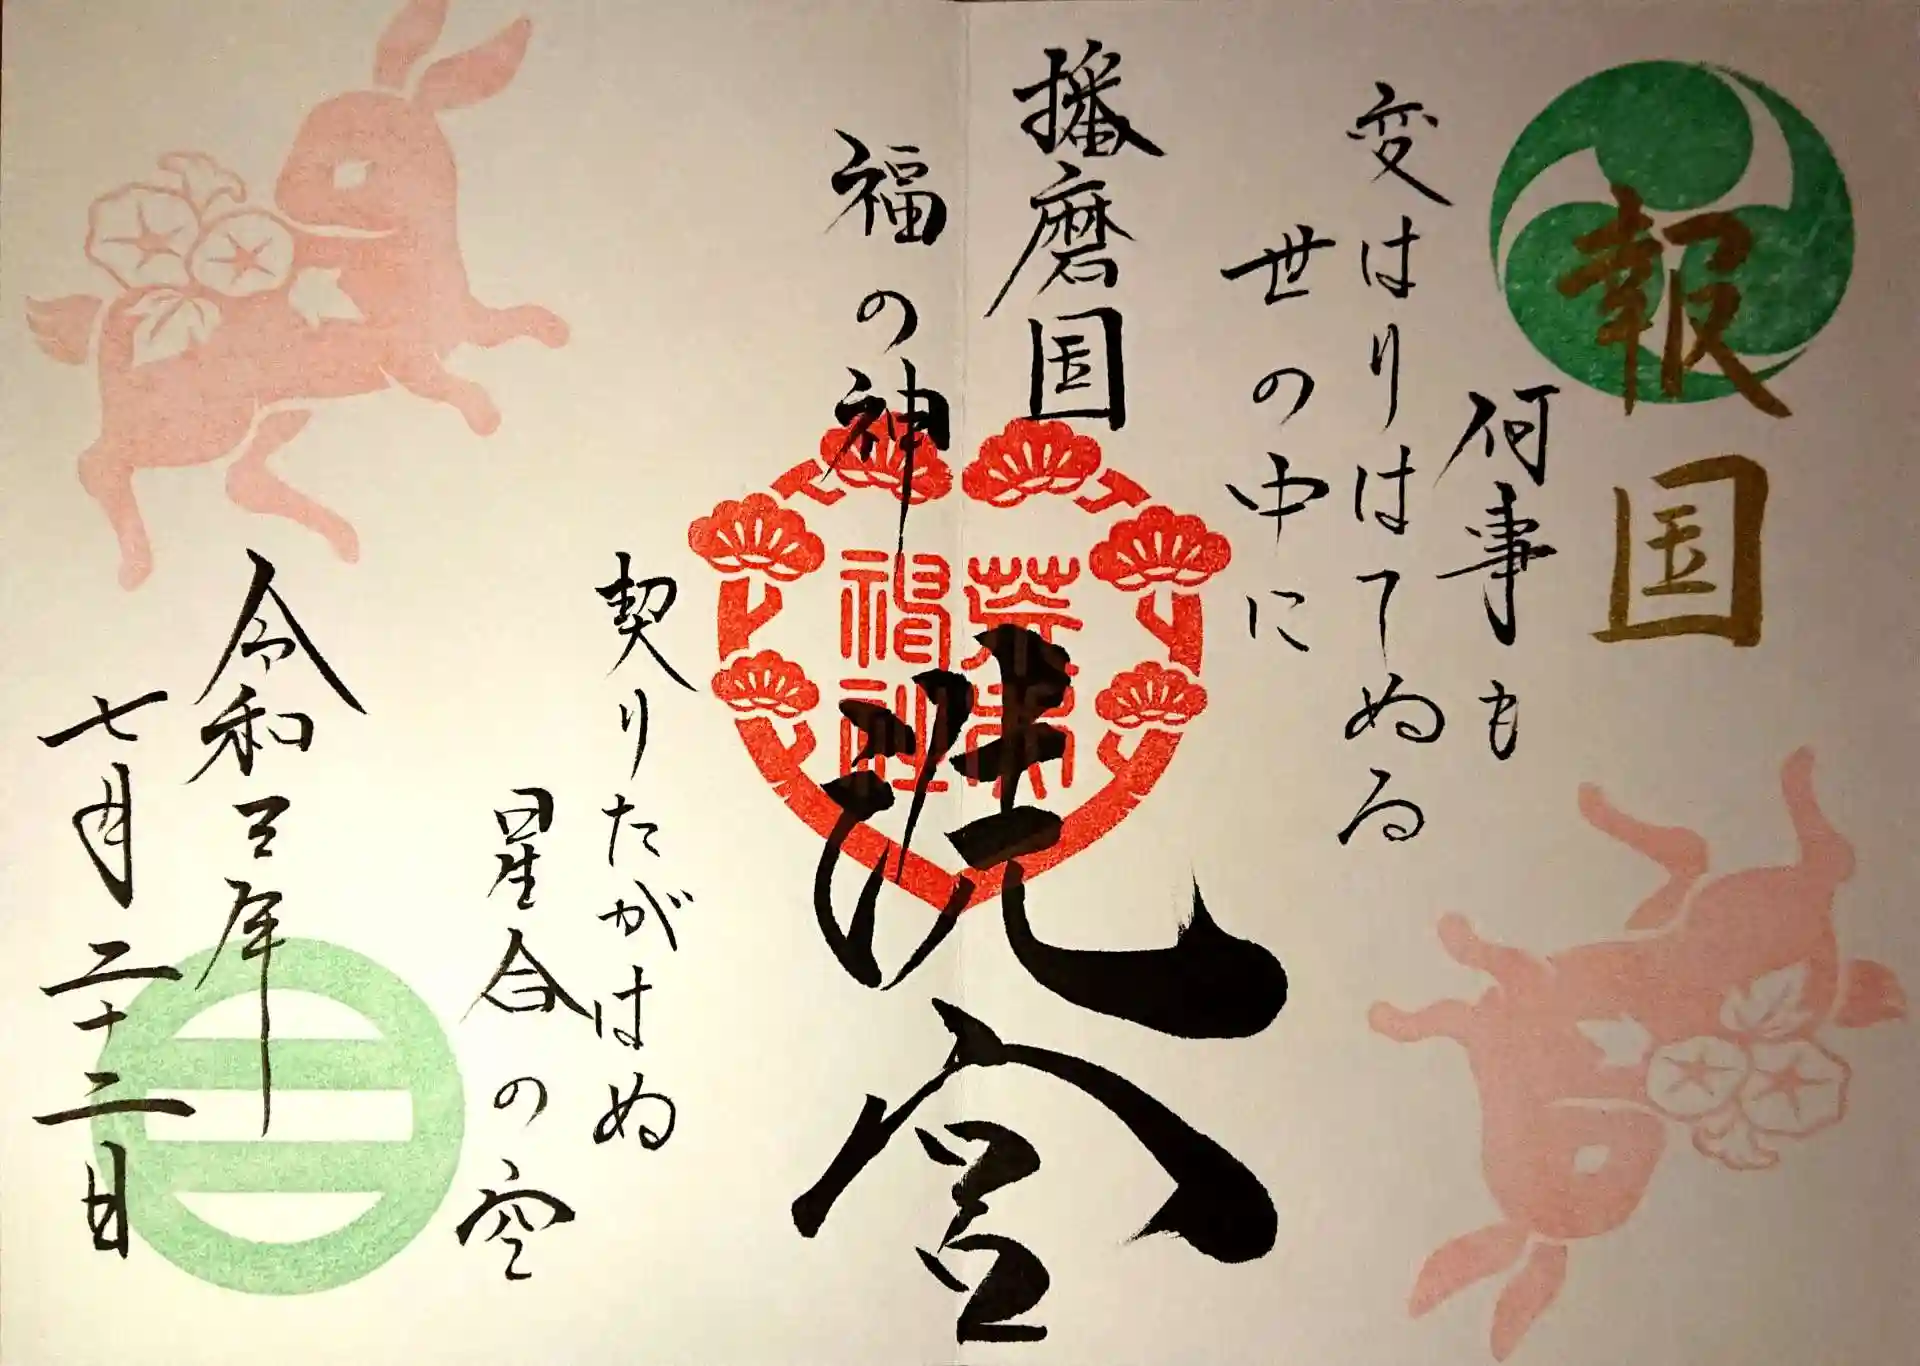 報国
何事も
変はりはてぬる
世の中に
播磨国
福の神
荒井
神社
洗宮
契りたがはぬ
星合の空
令和三年
七月二十二日